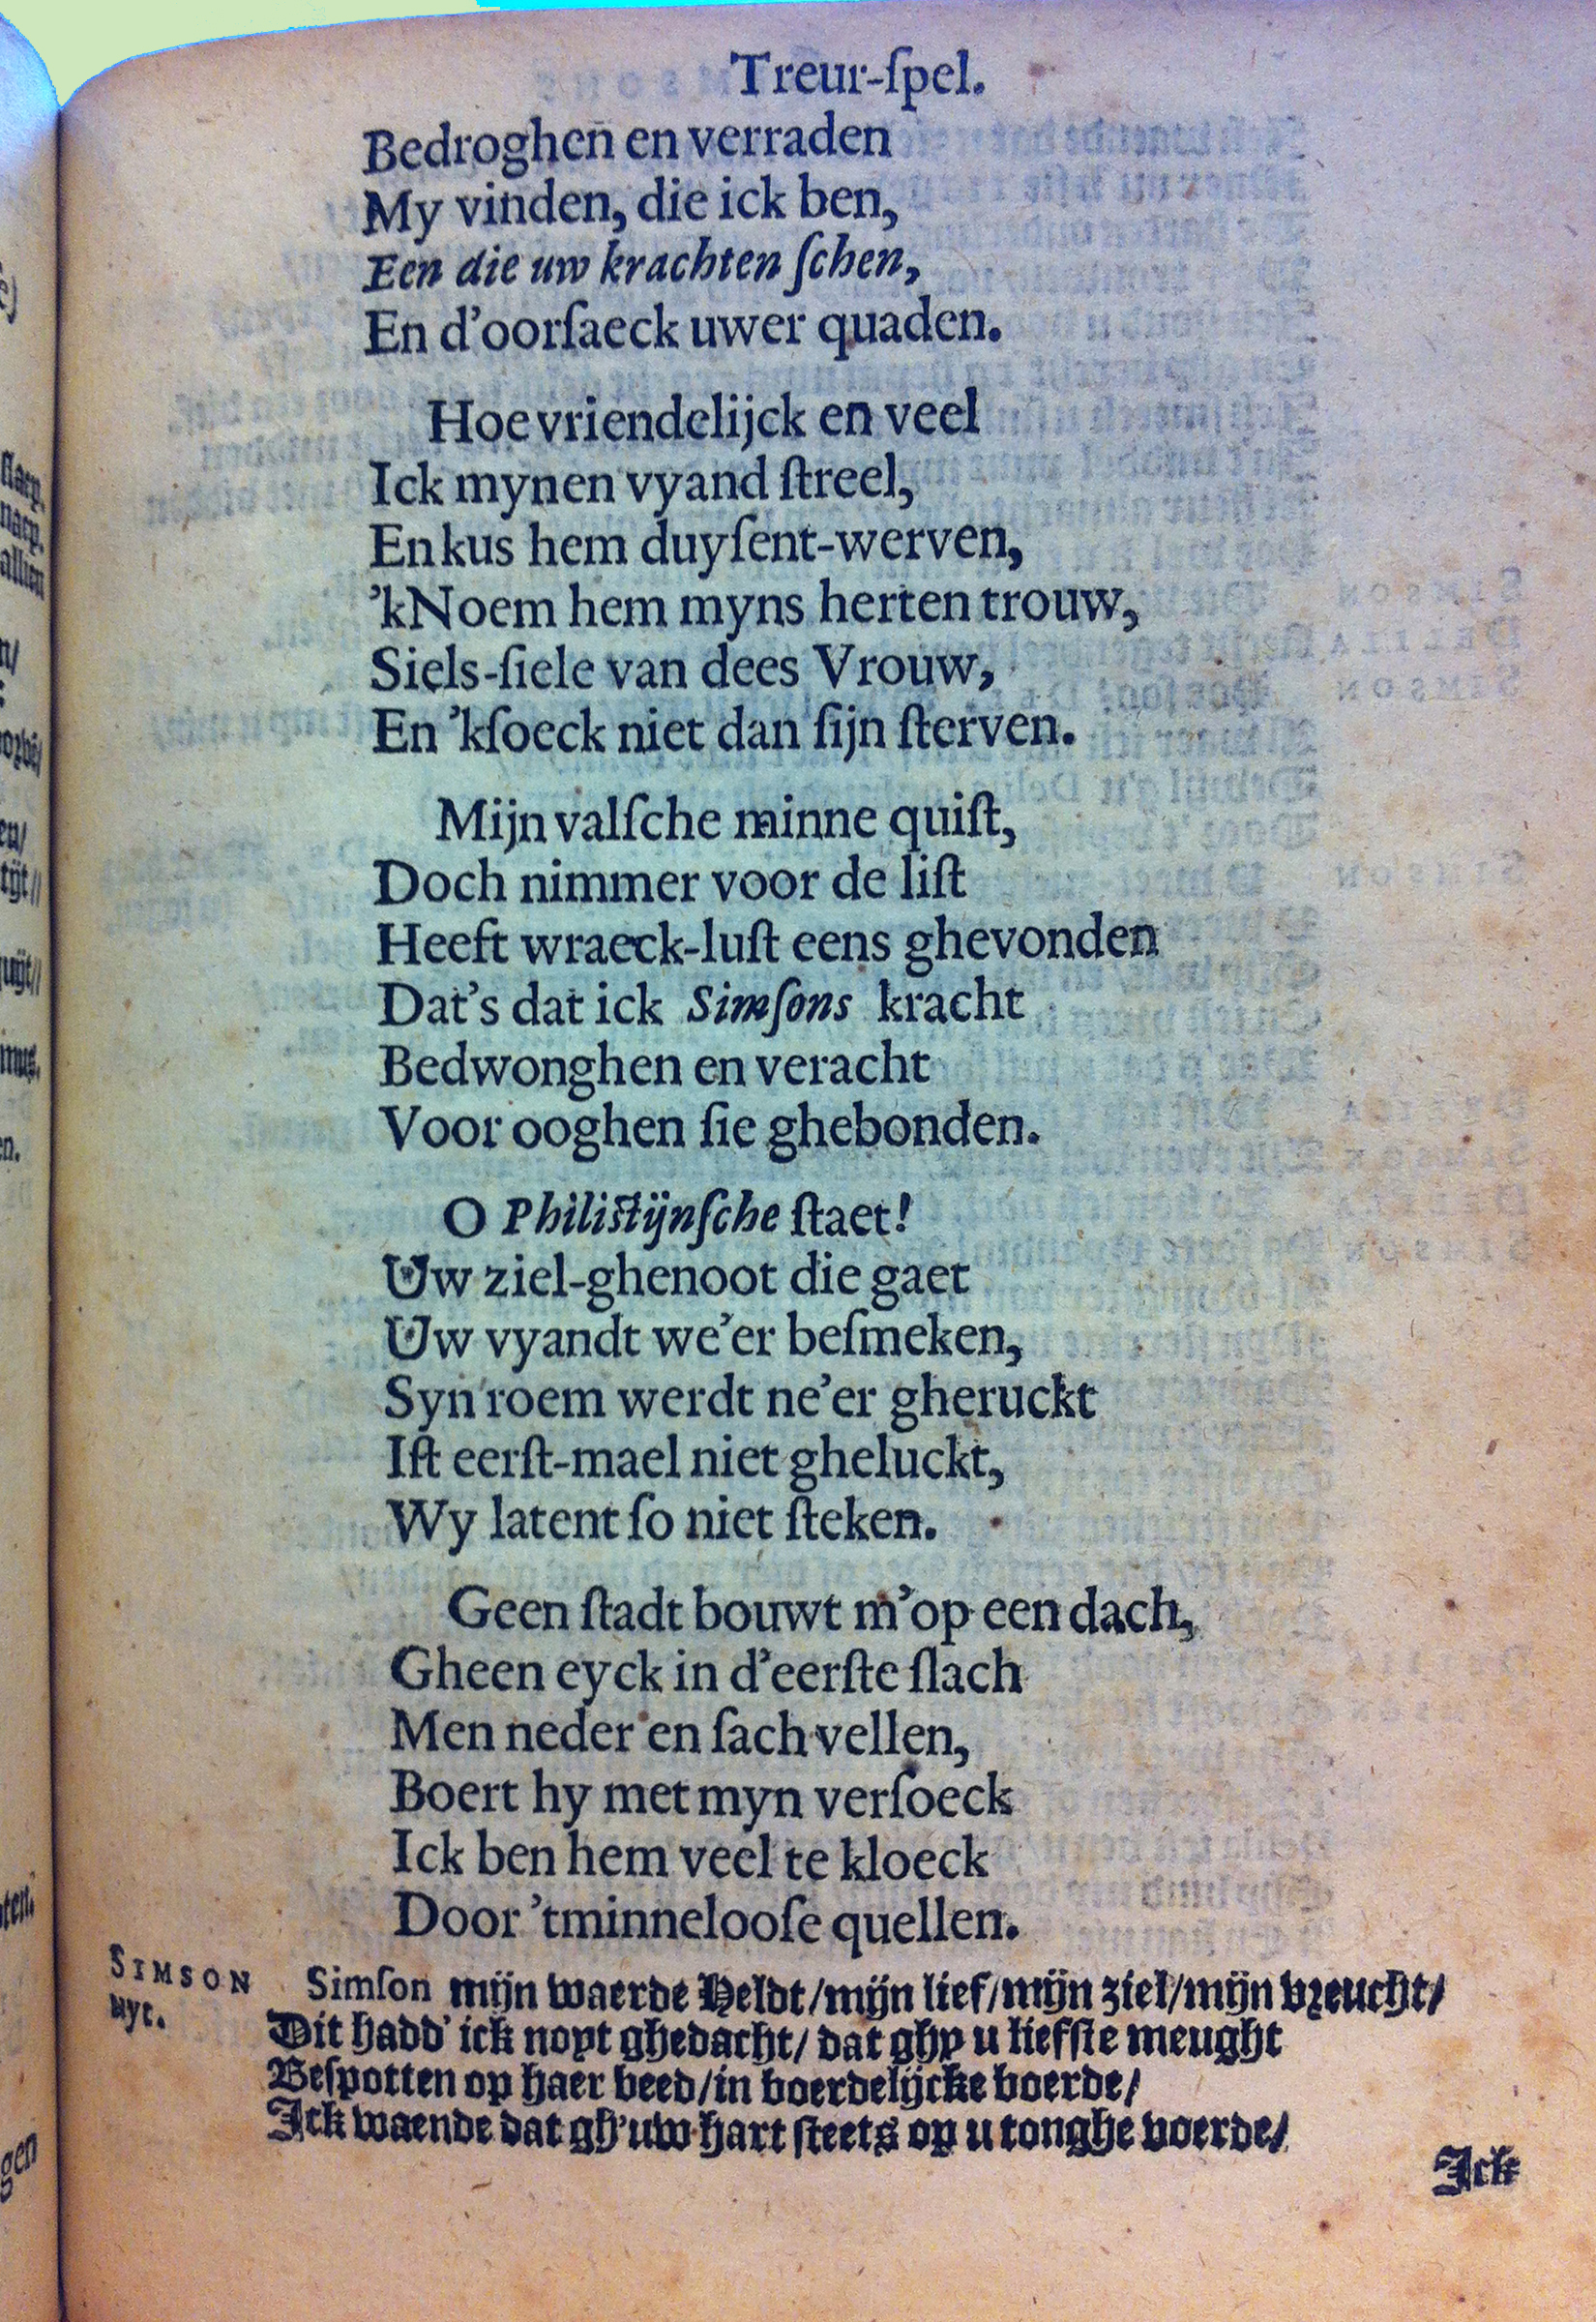 Treur-ſpel.
Bedroghen en verraden
My vinden, die ick ben,
Een die uw krachten ſchen,
En d'oorſaeck uwer quaden.
Hoe vriendelijck en veel
Ick mynen vyand ſtreel,
En kus hem duyſent-werven,
'kNoem hem myns herten trouw,
Siels-ſiele van dees Vrouw,
En 'kſoeck niet dan ſijn ſterven.
Mijn valſche minne quiſt,
Doch nimmer voor de liſt
Heeft wraeck-luſt eens ghevonden
Dat's dat ick Simſons kracht
Bedwonghen en veracht
Voor ooghen ſie ghebonden.
O Philiſtijnſche ſtaet!
Uw ziel-ghenoot die gaet
Uw vyandt we'er beſmeken,
Syn roem werdt ne'er gheruckt
Iſt eerſt-mael niet gheluckt,
Wy latent ſo niet ſteken.
Geen ſtadt bouwt m'op een dach,
Gheen eyck in d'eerſte ſlach
Men neder en ſach vellen,
Boert hy met myn verſoeck
Ick ben hem veel te kloeck
Door 'tminnelooſe quellen.
SIMSON uyt.
Simſon mijn waerde Heldt/mijn lief/mijn ziel/mijn vreucht/
Dit hadd' ick noyt ghedacht/ dat ghy u liefſte meught
Beſpotten op haer beed/in boerdelijcke boerde/
Ick waende dat gh'uw hart ſteets op u tonghe voerde/
Ick